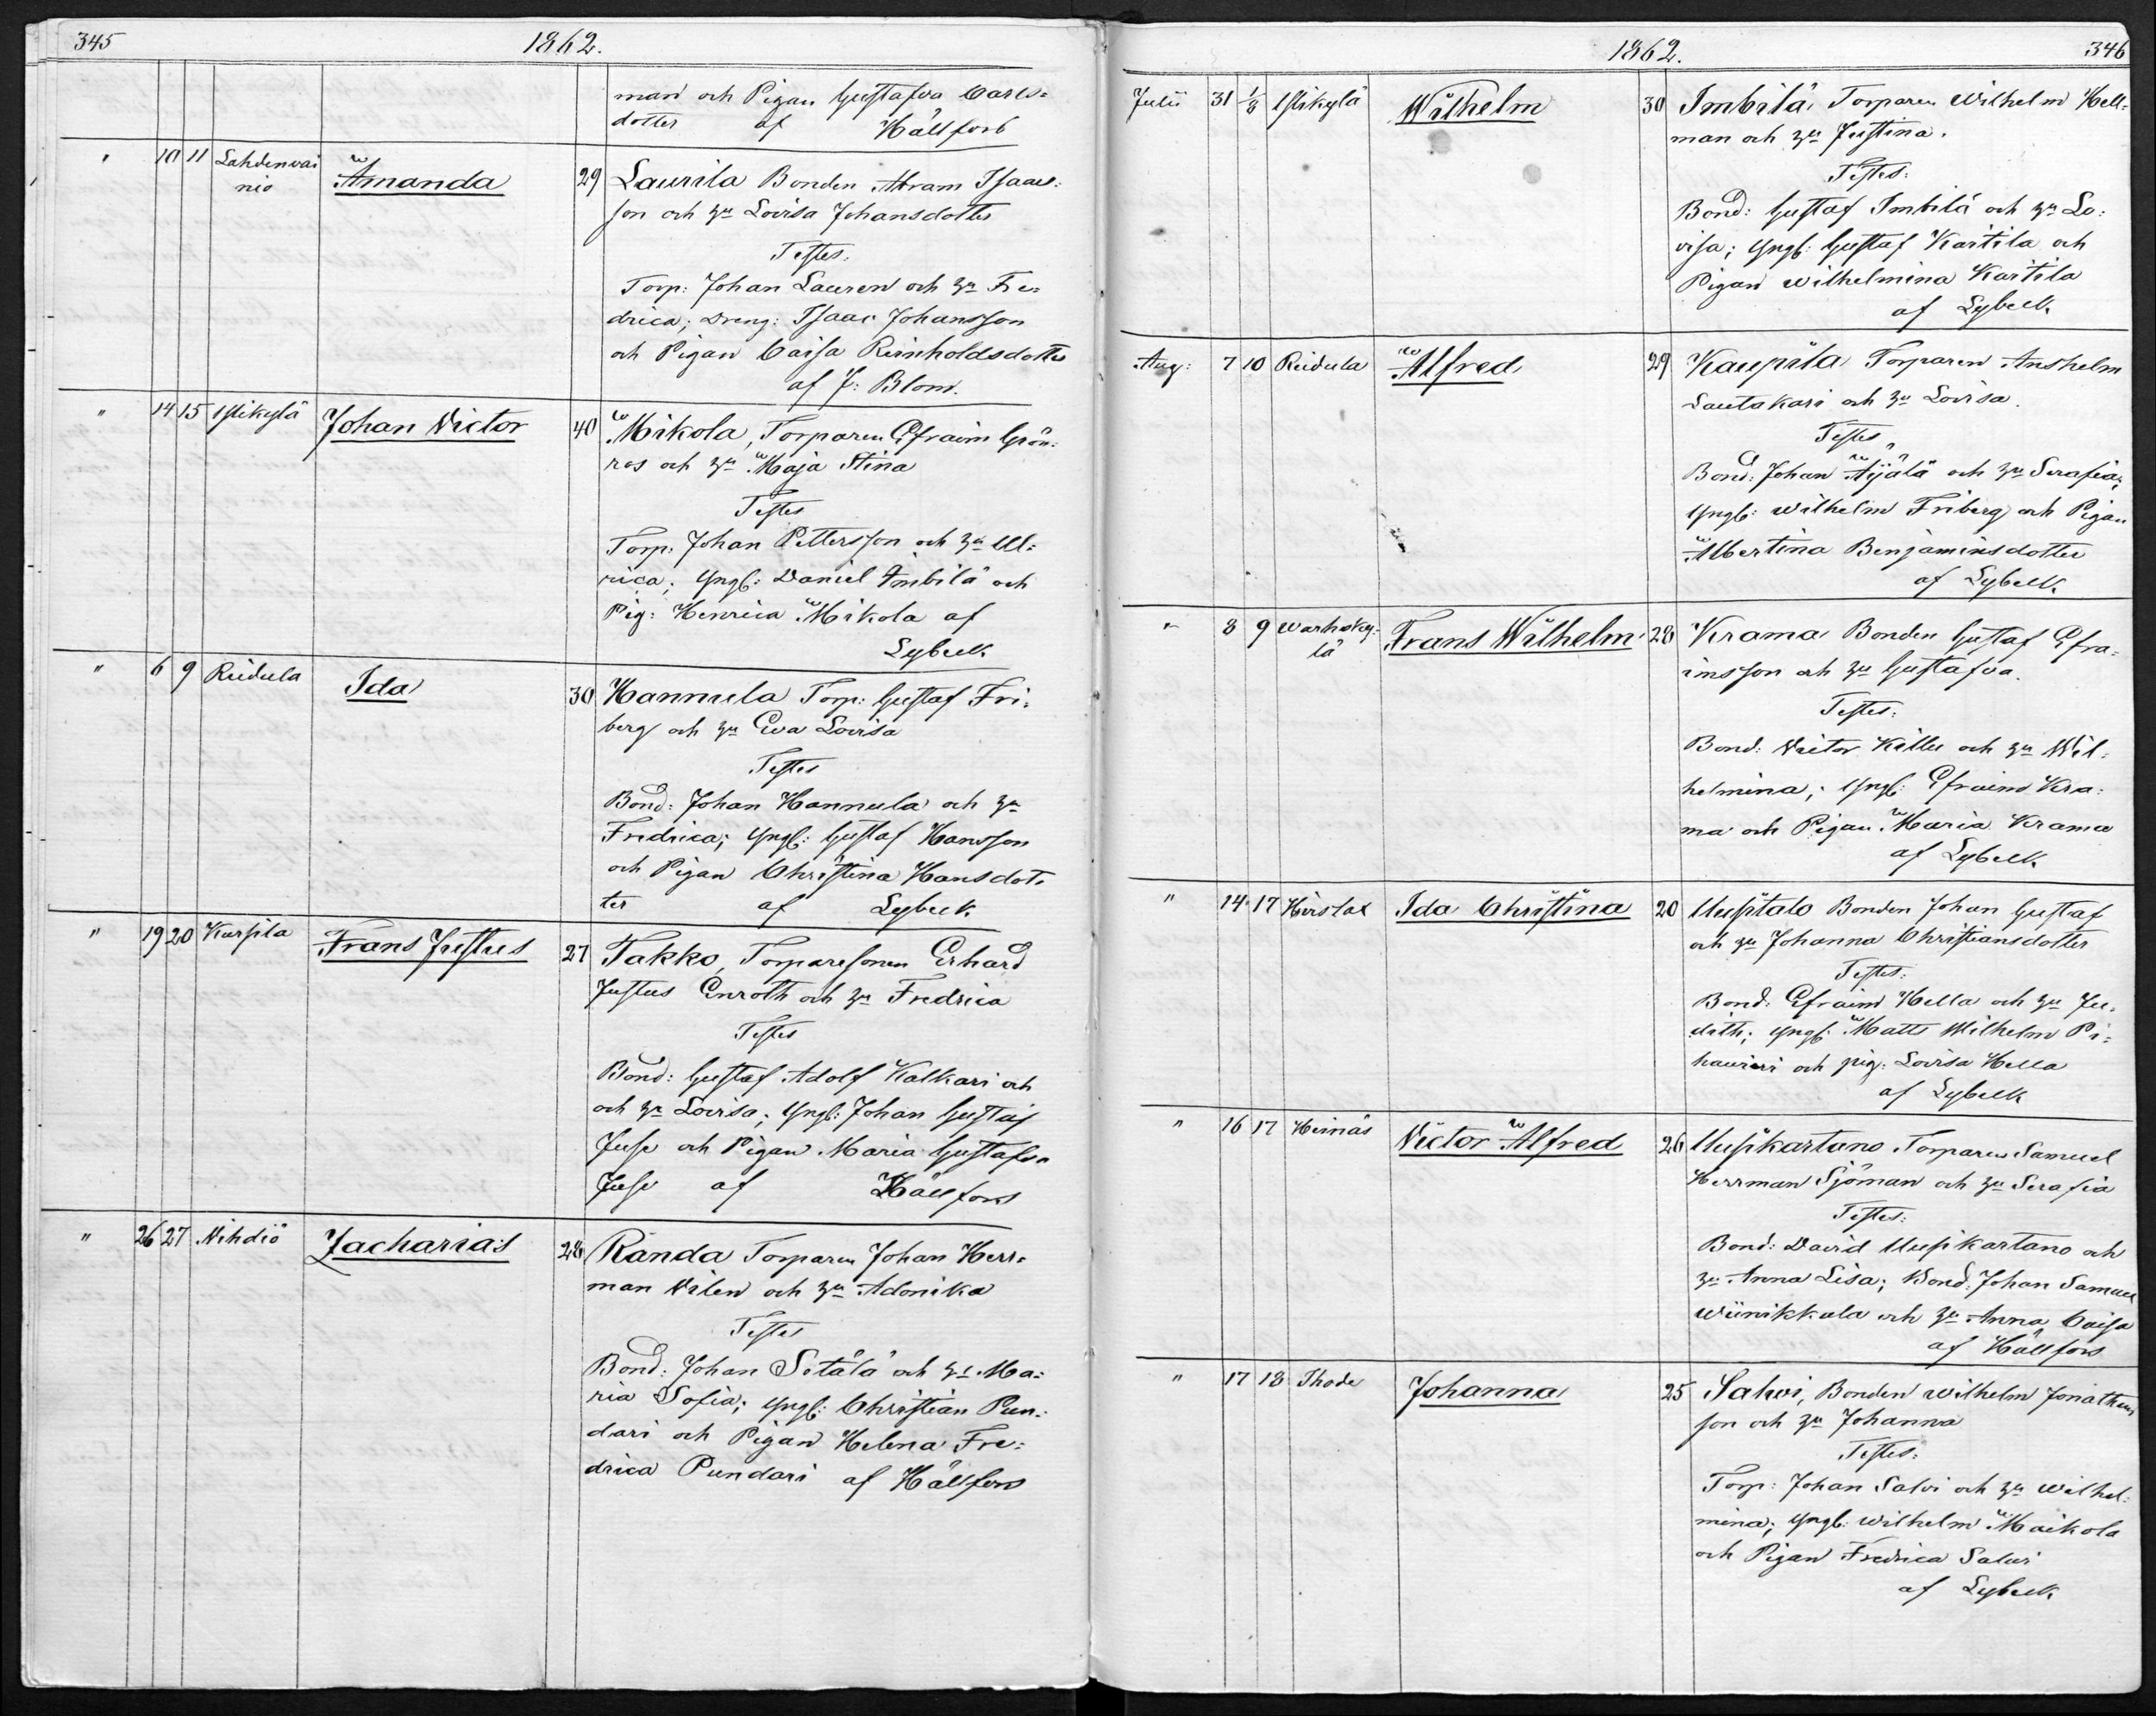 345
1862.
man och Pigan Gustafva Carls=
dotter af Hällfors
" 10 11 Lahdenvai
nio
Amanda
29 Laurila Bonden Abram Isaacs=
son och hu Lovisa Johansdotter
Testes.
Torp: Johan Lauren och hu Fre=
drica; Dreng: Isaac Johansson
och Pigan Caisa Reinholdsdotter
af J: Blom.
" 14 15 Ylikylä Johan Victor
40 Mikola, Torparen Efraim Grön=
ros och hu Maja Stina
Testes
Torp: Johan Pettersson och hu Ul=
rica; Yngl: Daniel Imbilä och
Pig: Henrica Mikola af
Lybeck
" 6 9 Reidula Ida
30 Hannula Torp: Gustaf Fri=
berg och hu Eva Lovisa
Testes
Bond: Johan Hannula och hu
Fredrica; Yngl: Gustaf Hansson
och Pigan Christina Hansdot=
ter af Lybeck
" 19 20 Karsila Frans Justus
27 Takko, Torparesonen Erhard
Justus Enroth och hu Fredrica
Testes
Bond: Gustaf Adolf Kalkari och
och hu Lovisa; Yngl: Johan Gustaf
Juse och Pigan Maria Gustafva
Juse af Hällfors
" 26 27 Nihdiö Zacharias
28 Randa Torparen Johan Herr=
man Vilen och hu Adonika
Testes
Bond: Johan Sotälä och hu Ma=
ria Sofia; Yngl: Christian Pun=
dari och Pigan Helena Fre=
drica Pundari af Hällfors
1862.
346
Julii 31 1/8 Ylikylä Wilhelm
30 Imbilä, Torparen Wilhelm Hell=
man och hu Justina.
Testes:
Bond: Gustaf Imbilä och hu Lo=
visa; Yngl: Gustaf Kartila och
Pigan Wilhelmina Kartila
af Lybeck
Aug: 7 10 Reidula Alfred
29 Kaupila Torparen Anshelm
Lautakari och hu Lovisa.
Testes
Bond: Johan Äijälä och hu Serafia;
Yngl: Wilhelm Friberg och Pigan
Albertina Benjaminsdotter
af Lybeck
" 8 9 Warhoky=
lä
Frans Wilhelm
28 Krama Bonden Gustaf Efra=
imsson och hu Gustafva.
Testes:
Bond: Victor Killu och hu Wil=
helmina; Yngl: Efraim Kra=
ma och Pigan Maria Krama
af Lybeck
" 14 17 Hirslax Ida Christina
20 Uusitalo Bonden Johan Gustaf
och hu Johanna Christiansdotter
Testes:
Bond: Efraim Hella och hu Ju=
dith; Yngl: Matts Wilhelm Pi=
hauriri och pig: Lovisa Hella
af Lybeck
" 16 17 Heinäs Victor Alfred
26 Uusikartano Torparen Samuel
Herrman Sjöman och hu Serafia
Testes:
Bond: David Uusikartano och
hu Anna Lisa; Bond: Johan Samuel
Wiinikkala och hu Anna Caisa
af Hällfors
" 17 18 Thode Johanna
25 Salwi, Bonden Wilhelm Jonathans
son och hu Johanna
Testes:
Torp: Johan Salvi och hu Wilhel=
mina; Yngl: Wilhelm Maikola
och Pigan Fredrica Salvi
af Lybeck